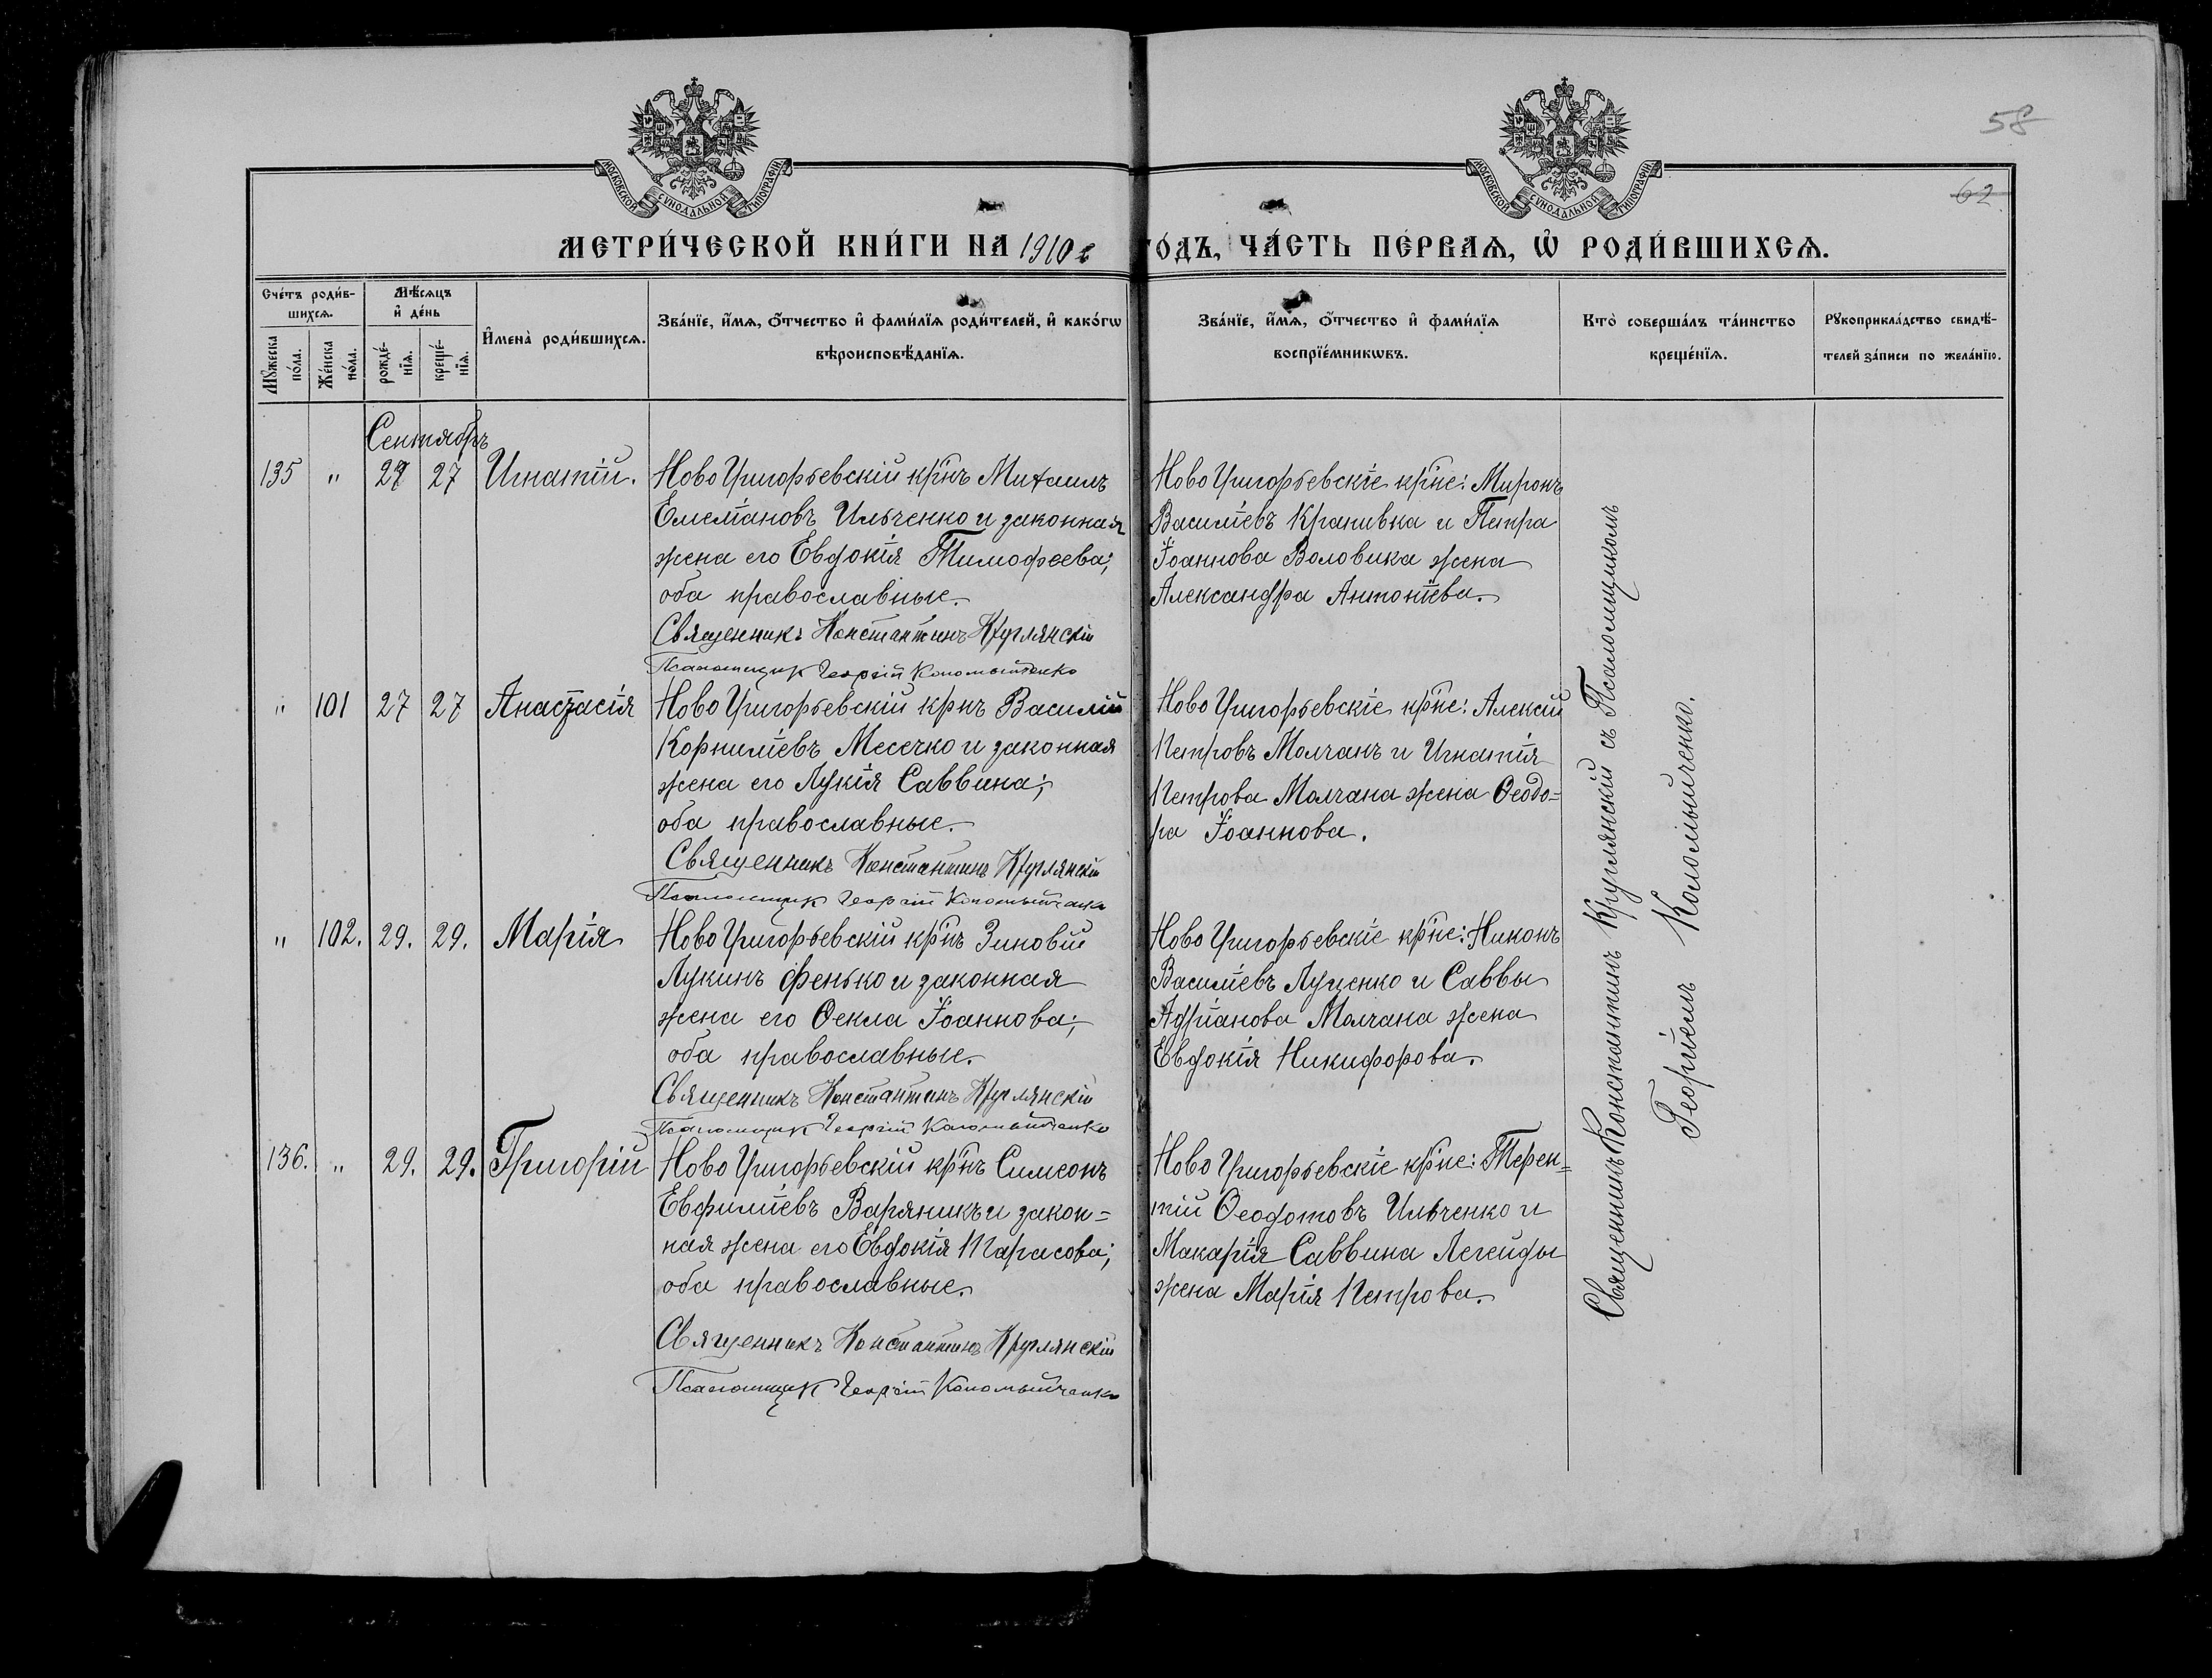 58
62
МОСКОВСКОЙ СУНОДАЛЬНОЙ ТИПОГРАФІИ
МОСКОВСКОЙ СУНОДАЛЬНОЙ ТИПОГРАФІИ
МЕТРИ́ЧЕСКОЙ КНИ́ГИ НА 1910 г ГО́ДЪ, ЧА́СТЬ ПЕ́РВАѦ, Ѡ҆ РОДИ́ВШИХСѦ.
Сче́тъ роди́в-
шихсѧ.
Мѣ́сѧцъ
и҆ де́нь
Мꙋжеска
по́ла.
Же́нска
по́ла.
рожде́-
нїѧ.
креще́-
нїѧ.
И҆мена̀ роди́вшихсѧ.
Зва́нїе, и҆́мѧ, ѻ҆́тчество и҆ фами́лїѧ роди́телей, и҆ како́гѡ
вѣроисповѣ́данїѧ.
Зва́нїе, и҆́мѧ, ѻ҆́тчество и҆ фами́лїѧ
воспрїе́мникѡвъ.
Кто̀ соверша́лъ та́инство
креще́нїѧ.
Рꙋкоприкла́дство свидѣ́-
телей за́писи по жела́нїю.
Сентябрь
135 " 27 27 Игнатій.
НовоГригорьевскій кр̃нъ Михаилъ
Емеліановъ Ильченко и законная
жена его Евдокія Тимофеева;
оба православные.
Священникъ Константинъ Круглянскій
Псаломщик Георгій Коломыйченко
НовоГригорьевскіе кр̃не: Миронъ
Василіевъ Крапивка и Петра
Іоаннова Воловика жена
Александра Антоніева.
" 101 27 27 Анастасія
НовоГригорьевскій крнъ Василій
Корниліевъ Месечко и законная
жена его Лукія Саввина;
оба православные.
Священникъ Константинъ Круглянскій
Псаломщик Георгій Коломыйченко
НовоГригорьевскіе кр̃не: Алексій
Петровъ Молчанъ и Игнатія
Петрова Молчана жена Ѳеодо=
ра Іоаннова.
" 102. 29. 29. Марія
НовоГригорьевскій кр̃нъ Зиновій
Лукинъ Фенько и законная
жена его Ѳекла Іоаннова;
оба православные.
Священникъ Константинъ Круглянскій
Псаломщик Георгій Коломыйченко
НовоГригорьевскіе кр̃не: Никонъ
Василіевъ Луценко и Саввы
Адріанова Молчана жена
Евдокія Никифорова.
136. " 29. 29. Григорій
НовоГригорьевскій кр̃нъ Симеонъ
Евфиміевъ Варяникъ и закон=
ная жена его Евдокія Тарасова;
оба православные.
Священникъ Константинъ Круглянскій
Псаломщик Георгій Коломыйченко
НовоГригорьевскіе кр̃не: Терен=
тій Ѳеодотовъ Ильченко и
Макарія Саввина Легейды
жена Марія Петрова.
Священникъ Константинъ Круглянскій съ Псаломщикомъ
Георгіемъ Коломыйченко.